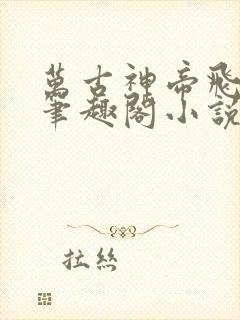 萬古神帝飛
筆趣閣小說
拉丝